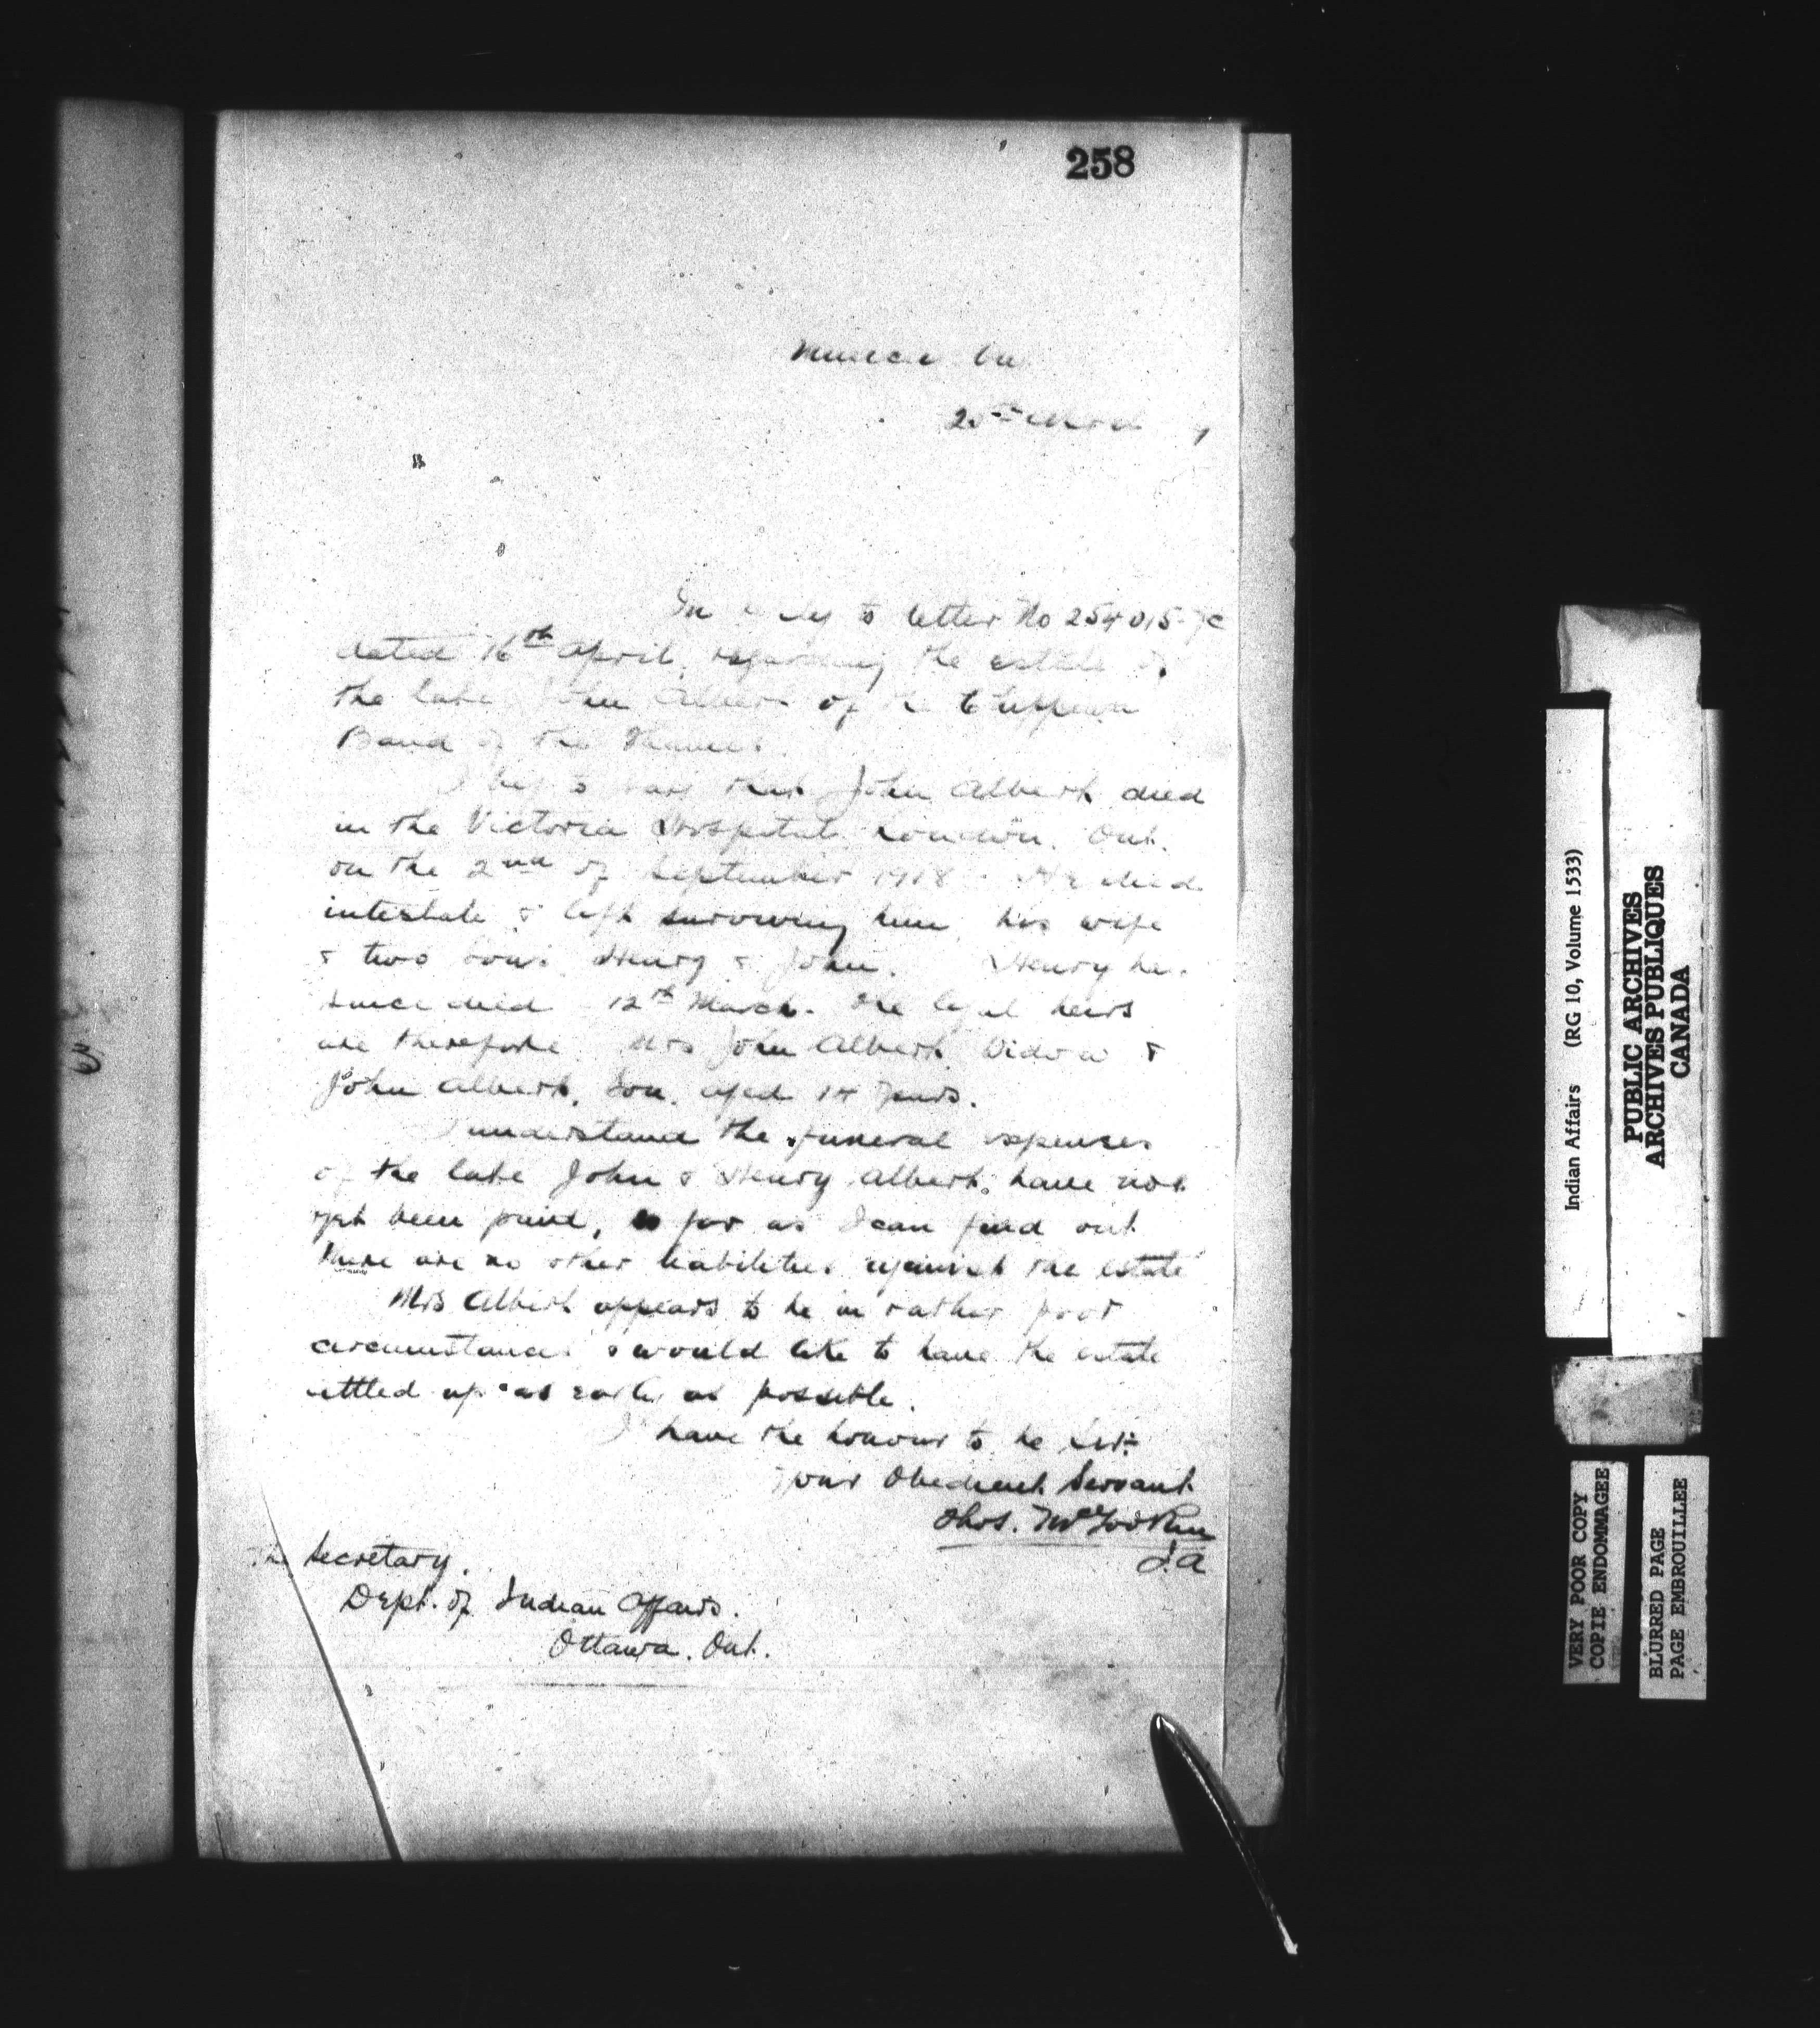 258
Muncee
20th
In to letter No 254015-7c
dated 16th April, regarding the estate of
the late John Albert of the Chippewa
Band of the Thames.
I beg to say that John Albert died
in the Victoria Hospital London. Ont.
on the 2nd of September 1918. He died
intestate & left surviving him, his wife
& two sons Henry & John. Henry has
since died 12th March. The legal heirs
are therefore Mrs John Albert Widow &
John Albert, Son. aged 14 years.
I understand the funeral expenses
of the late John & Henry Albert. have not
yet been paid, as far as I can find out
there are no other liabilities against the estate
Mrs Albert appears to be in rather poor
circumstances & would like to have the estate
settled up as early as possible.
I have the honour to be Sir:
Your Obedient Servant
I.A
The Secretary.
Dept. of Indian Affairs.
Ottawa. Ont.
Indian Affairs (RG 10, Volume 1533)
PUBLIC ARCHIVES
ARCHIVES PUBLIQUES
CANADA
VERY POOR COPY
COPIE ENDOMMAGEE
BLURRED PAGE
PAGE EMBROUILLEE